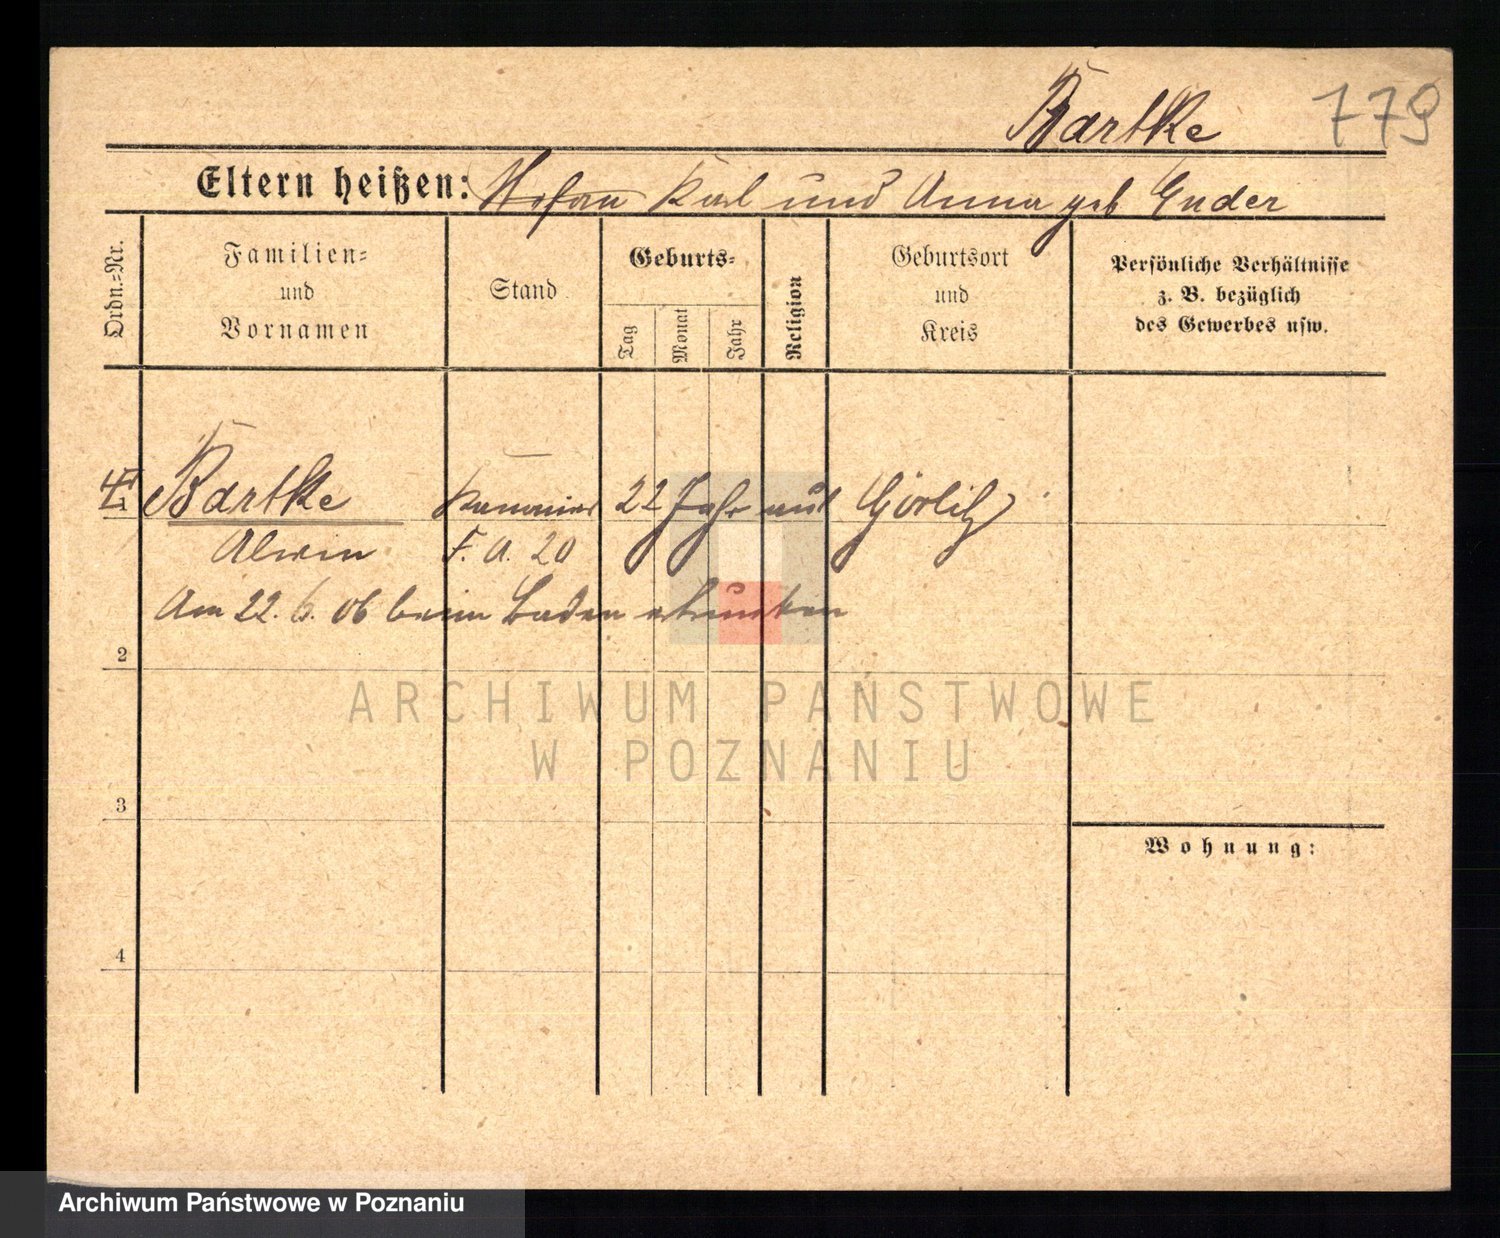 Bartke 779
Eltern heißen: Karl und Anna geb Ender
Ordn.=Nr.
Familien=
und
Vornamen
Stand
Geburts=
Tag
Monat
Jahr
Religion
Geburtsort
und
Kreis
Persönliche Verhältnisse
z. B. bezüglich
des Gewerbes usw.
Bartke Kanonier 22 Jahr aus Görlitz
Alwin F. A. 20
Am 22. 6. 06 beim Baden ertrunken
2
3
4
Wohnung:
ARCHIWUM PAŃSTWOWE
W POZNANIU
Archiwum Państwowe w Poznaniu